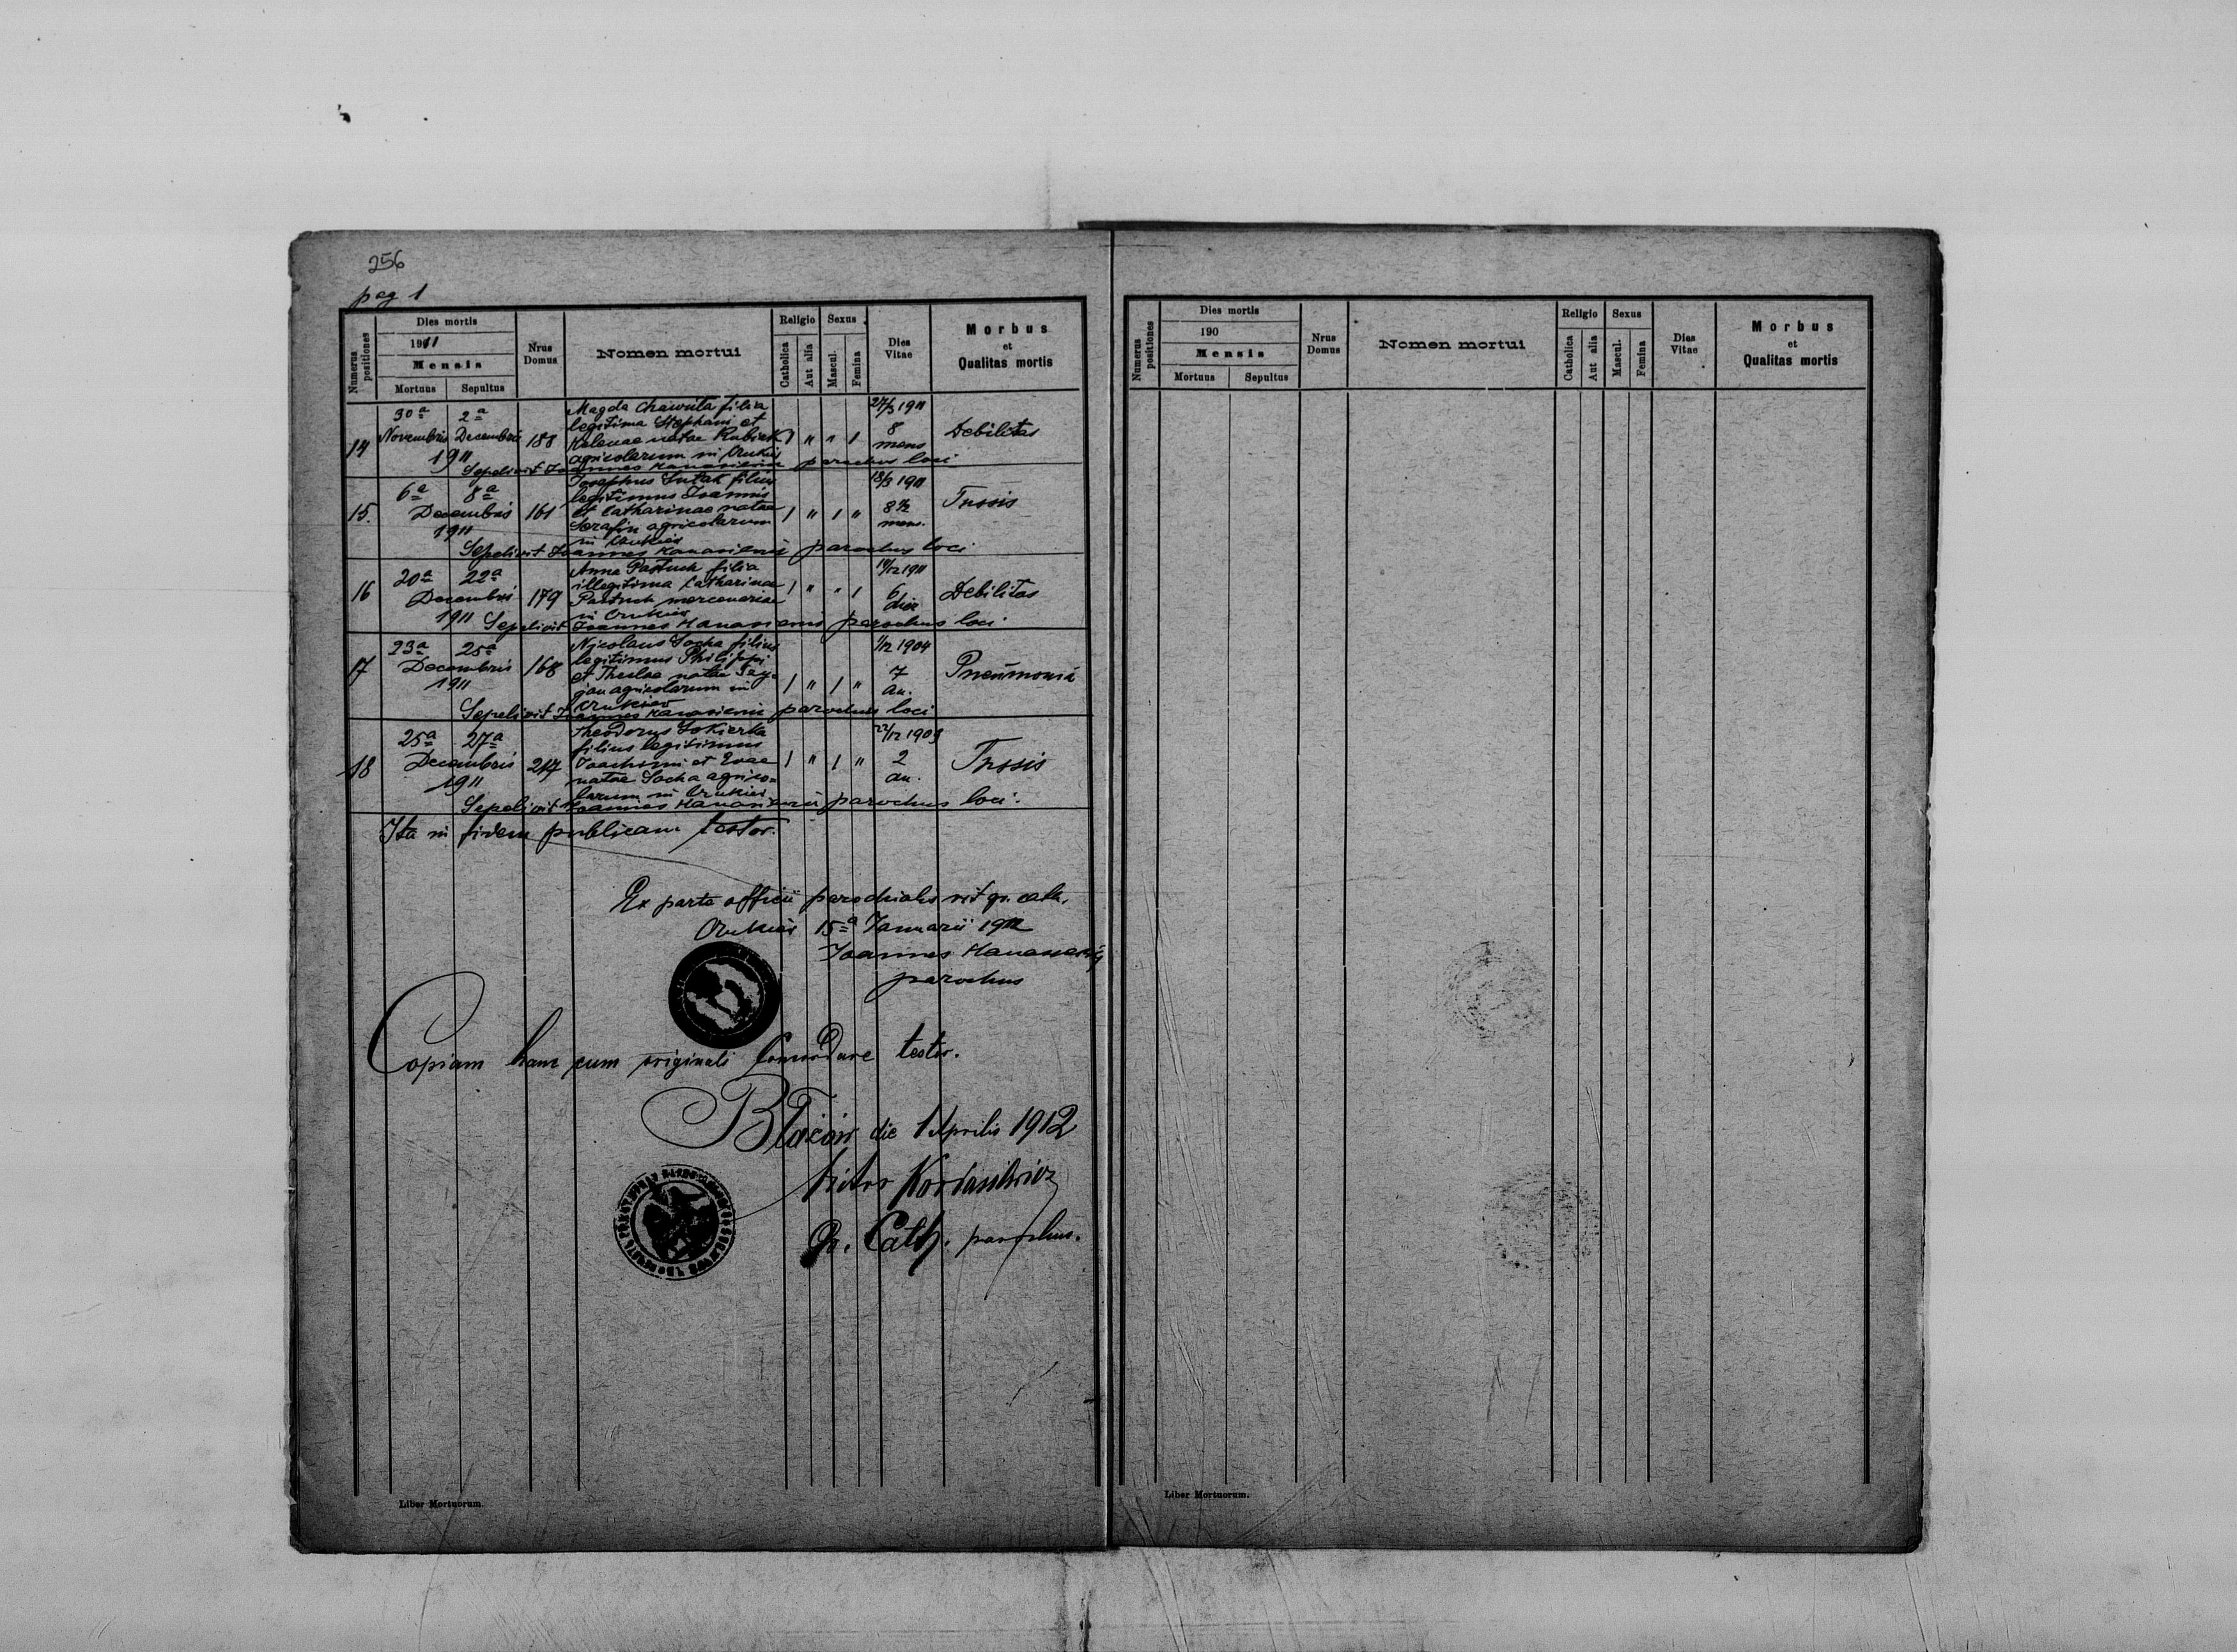 256
pag 1
Numerus positiones
Dies mortis
1911
Mensis
Mortuus Sepultus
Nrus Domus
Nomen mortui
Religio
Catholica
Aut alia
Sexus
Mascul.
Femina
Dies Vitae
Morbus
et
Qualitas mortis
14
30a 2a
Novembris Decembris
1911
188
Magda Chawuta filia
legitima Stephani et
Helenae natae Rubiek
agricolarum in
1 " " 1
27/3 1911
8
mens
Debilitas
Sepelivit Joannes parochus loci
15.
6a 8a
Decembris
1911
161
Josephus filius
legitimus Joannis
et Catharinae natae
Serafin agricolarum
in
1 " 1 "
18/3 1911
8 1/2
mens.
Tussis
Sepelivit Joannes parochus loci
16
20a 22a
Decembris
1911
179
Anna Pastuch filia
illegitima Catharinae
Pastuch mercenariae
in
1 " " 1
14/12 1911
6
dies
Debilitas
Sepelivit Joannes parochus loci
17
23a 25a
Decembris
1911
168
Nicolaus Socha filius
legitimus Philippi
et Theclae natae
agricolarum in
1 " 1 "
1/12 1904
7
an.
Pneumonia
Sepelivit Joannes parochus loci
18
25a 27a
Decembris
1911
217
Theodorus Sokierka
filius legitimus
Joachimi et Evae
natae Socha agrico=
larum in
1 " 1 "
22/12 1909
2
an.
Tussis
Sepelivit Joannes parochus loci.
Ita in fidem publicam testor.
Ex parte officii parochialis rit gr. cath.
15a Januarii 1912
Joannes
parochus
Copiam hanc cum originali testor.
die 1 Aprilis 1912
Gr. Cath. parochus.
Liber Mortuorum.
Numerus positiones
Dies mortis
190
Mensis
Mortuus Sepultus
Nrus Domus
Nomen mortui
Religio
Catholica
Aut alia
Sexus
Mascul.
Femina
Dies Vitae
Morbus
et
Qualitas mortis
Liber Mortuorum.